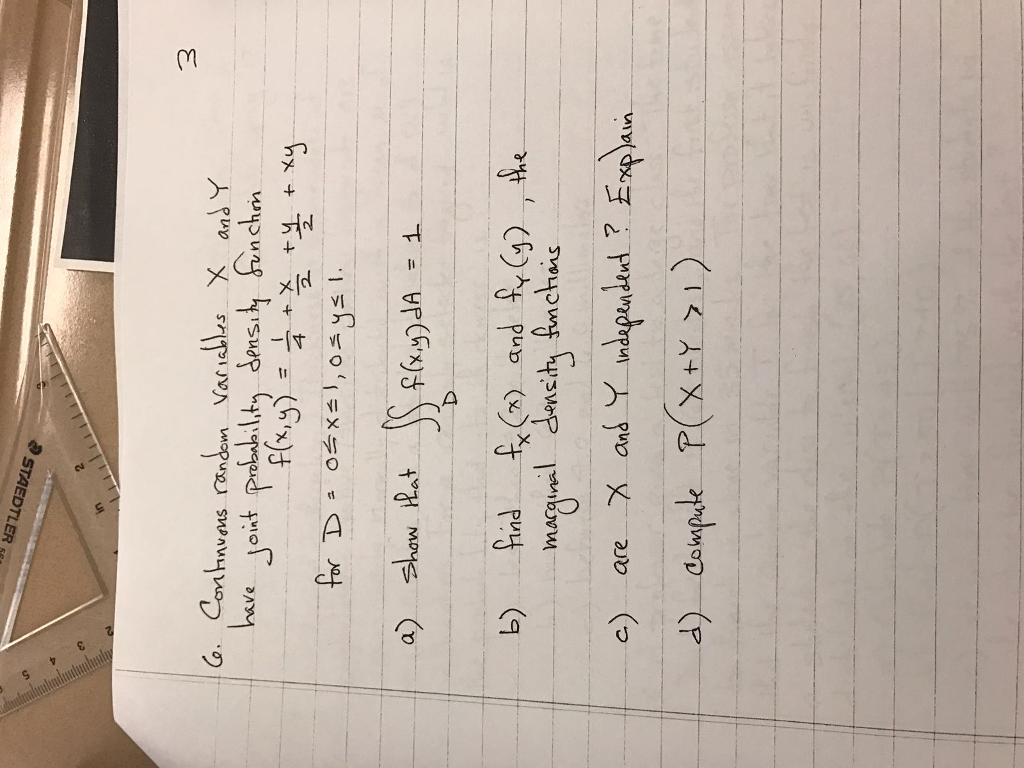 3
6. Continuous random variables X and Y
have joint probability density function
f(x,y) = 1/4 + x/2 + y/2 + xy
for D = 0≤x≤1, 0≤y≤1.
a) show that ∬_D f(x,y)dA = 1
b) find f_X(x) and f_Y(y), the
marginal density functions
c) are X and Y independent? Explain
d) compute P(X+Y > 1)
STAEDTLER
in
2
3
5
4
3
2